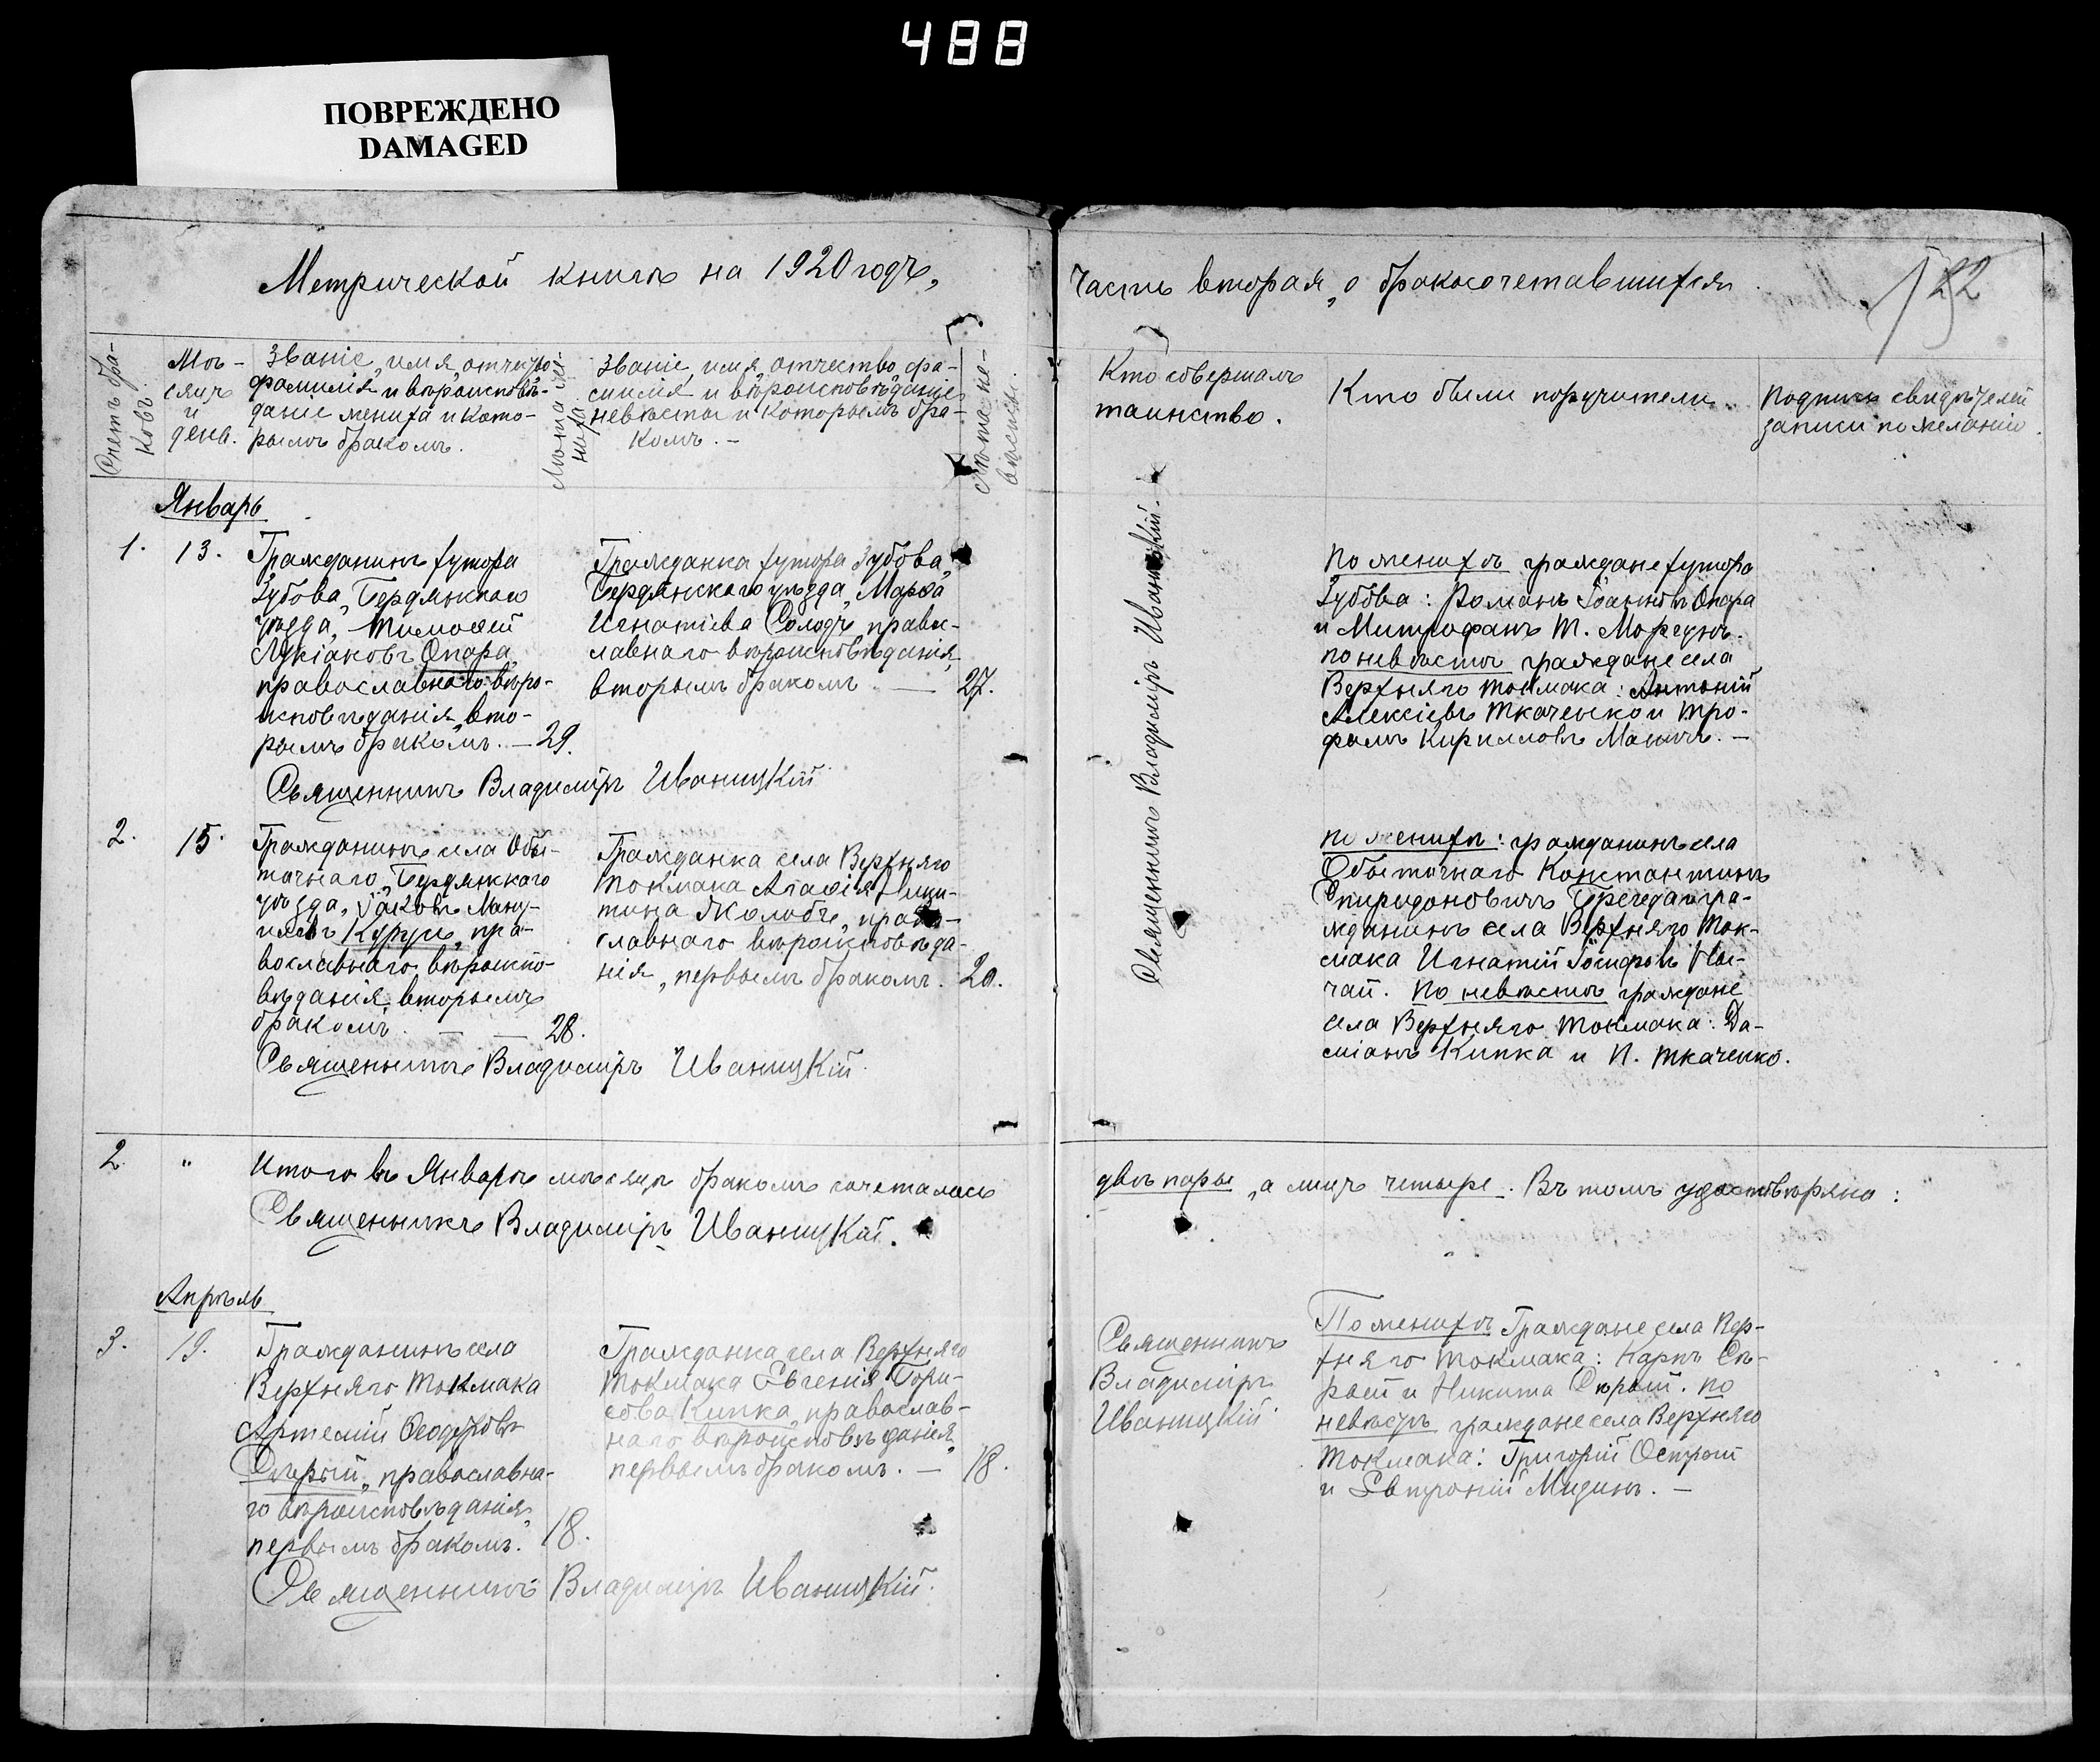 488
ПОВРЕЖДЕНО
DAMAGED
Метрической книги на 1920 годъ,
часть вторая, о бракосочетавшихся
Счетъ бра-
ковъ.
Мѣ-
сяцъ
и
день.
Званіе, имя, отчество,
фамилія и вѣроисповѣ-
даніе жениха и кото-
рымъ бракомъ.
Лѣта же-
ниха
Званіе, имя, отчество, фа-
милія и вѣроисповѣданіе
невѣсты и которымъ бра-
комъ. –
Лѣта не-
вѣсты.
Кто совершалъ
таинство.
Кто были поручители
Подписи свидѣтелей
записи по желанію.
Январь
1.
13.
Гражданинъ хутора
Зубова, Бердянскаго
уѣзда, Тимофей
Лукіановъ Опара,
православнаго вѣро-
исповѣданія, вто-
рымъ бракомъ. – 29.
Гражданка хутора Зубова,
Бердянскаго уѣзда, Марѳа
Игнатіева Солодъ, право-
славнаго вѣроисповѣданія,
вторымъ бракомъ. — 27.
Священникъ Владиміръ Иваницкій.
По женихѣ граждане хутора
Зубова: Романъ Іоанновъ Опара
и Митрофанъ Т.
по невѣстѣ граждане села
Верхняго Токмака: Антоній
Алексіевъ Ткаченко и Тро-
фимъ Кирилловъ –
Священникъ Владиміръ Иваницкій
2.
15.
Гражданинъ села Обы-
точнаго, Бердянскаго
уѣзда, Іаковъ Ману-
иловъ пра-
вославнаго вѣроиспо-
вѣданія, вторымъ
бракомъ. — — 28.
Гражданка села Верхняго
Токмака Агаѳія Ники-
тина право-
славнаго вѣроисповѣда-
нія, первымъ бракомъ. 20.
Священникъ Владиміръ Иваницкій.
По женихѣ: гражданинъ села
Обыточнаго Константинъ
Спиридоновичъ гра-
жданинъ села Верхняго Ток-
мака Игнатій Іосифовъ Ны-
чай. По невѣстѣ граждане
села Верхняго Токмака: Да-
міанъ Кипка и П. Ткаченко.
2
"
Итого въ Январѣ мѣсяцѣ бракомъ сочеталось
двѣ пары, а лицъ четыре. Въ томъ удостовѣряю:
Священникъ Владиміръ Иваницкій.
Апрѣль
3.
19.
Гражданинъ села
Верхняго Токмака
Артемій Ѳеодоровъ
Сѣрый, православна-
го вѣроисповѣданія,
первымъ бракомъ. 18.
Гражданка села Верхняго
Токмака Евгенія Бори-
сова Кипка, православ-
наго вѣроисповѣданія,
первымъ бракомъ. – 18.
Священникъ
Владиміръ
Иваницкій.
По женихѣ Граждане села Вер-
хняго Токмака: Карпъ Сѣ-
рый и Никита Сѣрый. По
невѣстѣ граждане села Верхняго
Токмака: Григорій Острый
и Евтроній Мизинъ. –
Священникъ Владиміръ Иваницкій.